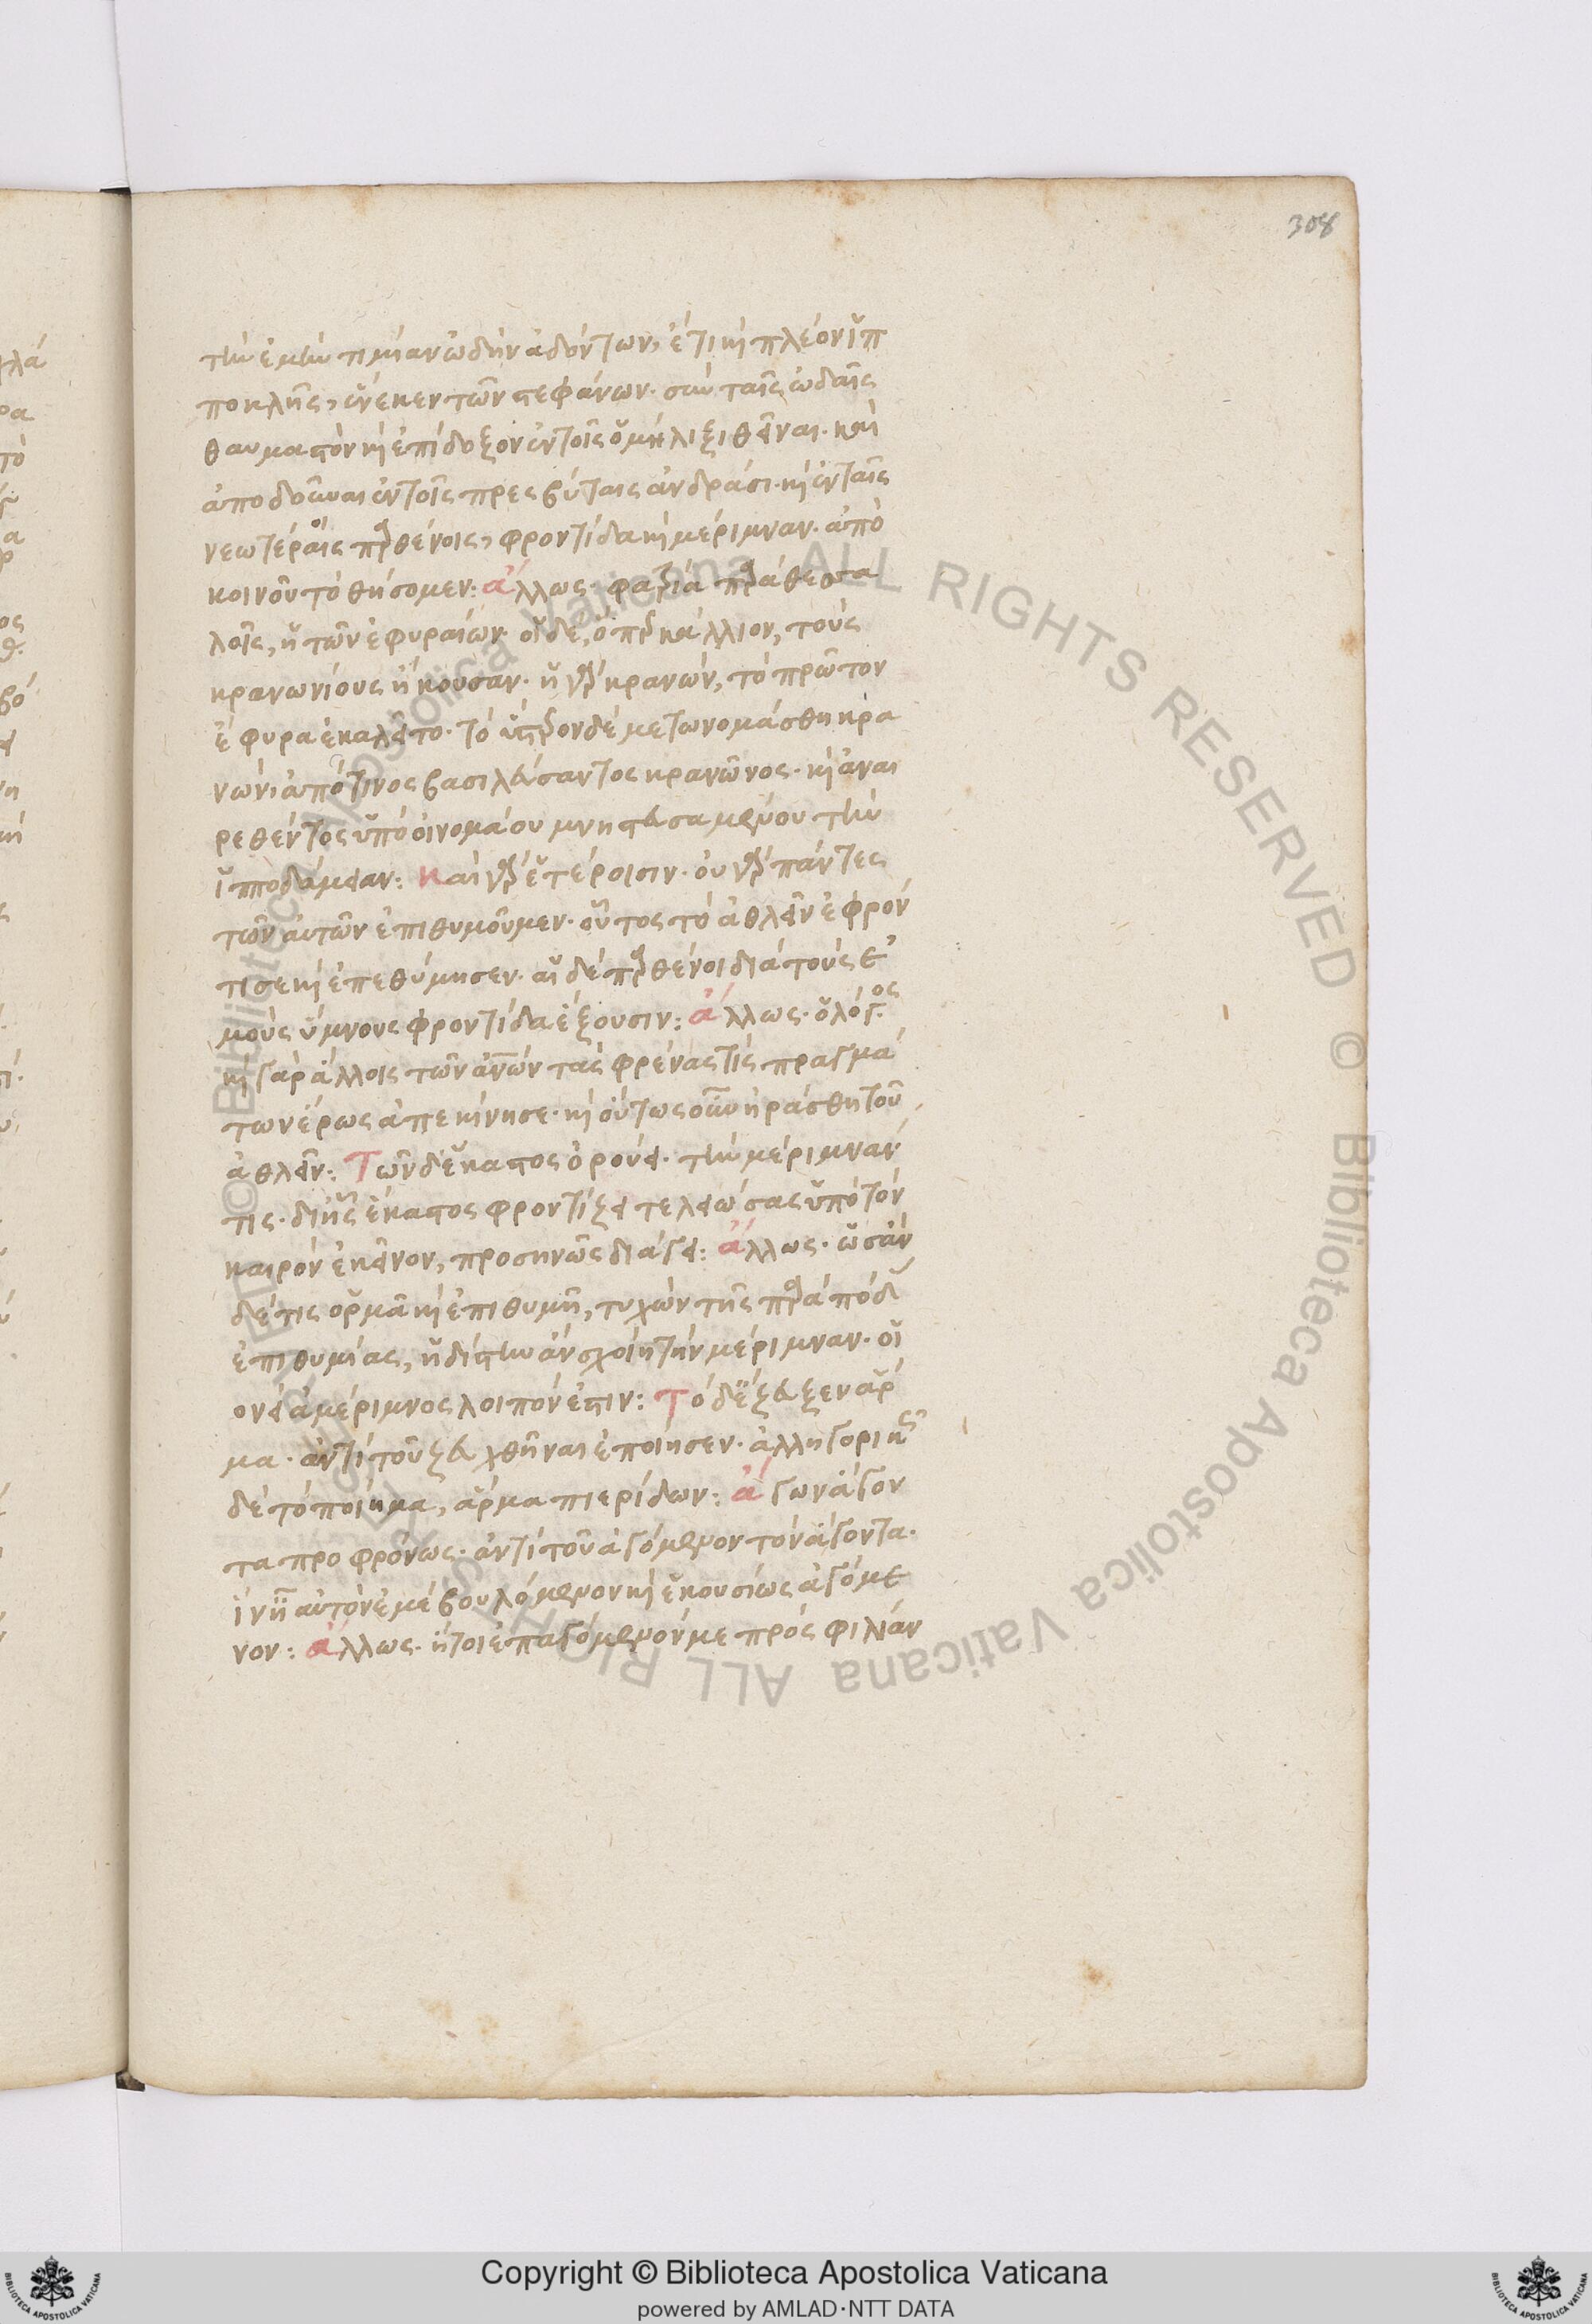 308
τὴν ἐμὴν τιμίαν ὠδὴν ᾀδόντων, ἔτι κὴ πλέον ἱπ
ποκλῆς, ἕνεκεν τῶν στεφάνων. σὺν ταῖς ὠδαῖς
θαυμαστὸν κὴ ἐπίδοξον ἐν τοῖς ὁμήλιξι θεῖναι. καὶ
ἀποδοῦναι ἐν τοῖς πρεσβύταις ἀνδράσι. κὴ ἐν ταῖς
νεωτέραις παρθένοις, φροντίδα κὴ μέριμναν. ἀπὸ
κοινοῦ τὸ θήσομεν: ἄλλως. φασὶ παρὰ θεσσα
λοῖς, ἢ τῶν ἐφυραίων. οἱ δὲ, ὅπερ κάλλιον, τοὺς
κρανωνίους ἤκουσαν. ἡ γὰρ κρανὼν, τὸ πρῶτον
ἐφυρα ἐκαλεῖτο. τὸ ὕστερον δὲ μετωνομάσθη κρα
νὼν ἀπό τινος βασιλεύσαντος κρανῶνος. κὴ ἀναι
ρεθέντος ὑπὸ οἰνομάου μνηστευσαμένου τὴν
ἱπποδάμειαν: Καὶ γὰρ ἑτέροισιν. οὐ γὰρ πάντες
τῶν αὐτῶν ἐπιθυμοῦμεν. οὗτος τὸ ἀθλεῖν ἐφρόν
τισε κὴ ἐπεθύμησεν. αἱ δὲ παρθένοι διὰ τοὺς ἐ
μοὺς ὕμνους φροντίδα ἕξουσιν: ἄλλως. ὁ λόγος.
κὴ γὰρ ἄλλοις τῶν ἀνων τὰς φρένας τὶς πραγμά
των ἔρως ἀπεκίνησε. κὴ οὕτως οὖν ἠράσθη τοῦ
ἀθλεῖν: Τῶν δ' ἕκαστος ὀρούει. τὴν μέριμνάν
τις. δι' ἧς ἕκαστος φροντίζει τελειώσας ὑπὸ τὸν
καιρὸν ἐκεῖνον, προσηνῶς διάγει: ἄλλως. ὡς ἂν
δέ τις ὁρμᾷ κὴ ἐπιθυμῇ, τυχὼν τῆς παρὰ πόδας
ἐπιθυμίας, ἡδίστην ἂν σχοίη τὴν μέριμναν. οἱ
ονεὶ ἀμέριμνος λοιπόν ἐστιν: Τόδ' ἔζευξεν ἅρ
μα. ἀντὶ τοῦ ζευχθῆναι ἐποίησεν. ἀλληγορικῶς
δὲ τὸ ποίημα, ἅρμα πιερίδων: ἄγων ἄγον
τα προφρόνως. ἀντὶ τοῦ ἀγόμενον τὸν ἄγοντα.
ἵν' ᾖ αὐτὸν ἐμὲ βουλόμενον κὴ ἑκουσίως ἀγόμε
νον: ἄλλως. ἤτοι ἐπαγόμενόν με πρὸς φιλίαν
Copyright © Biblioteca Apostolica Vaticana
powered by AMLAD·NTT DATA